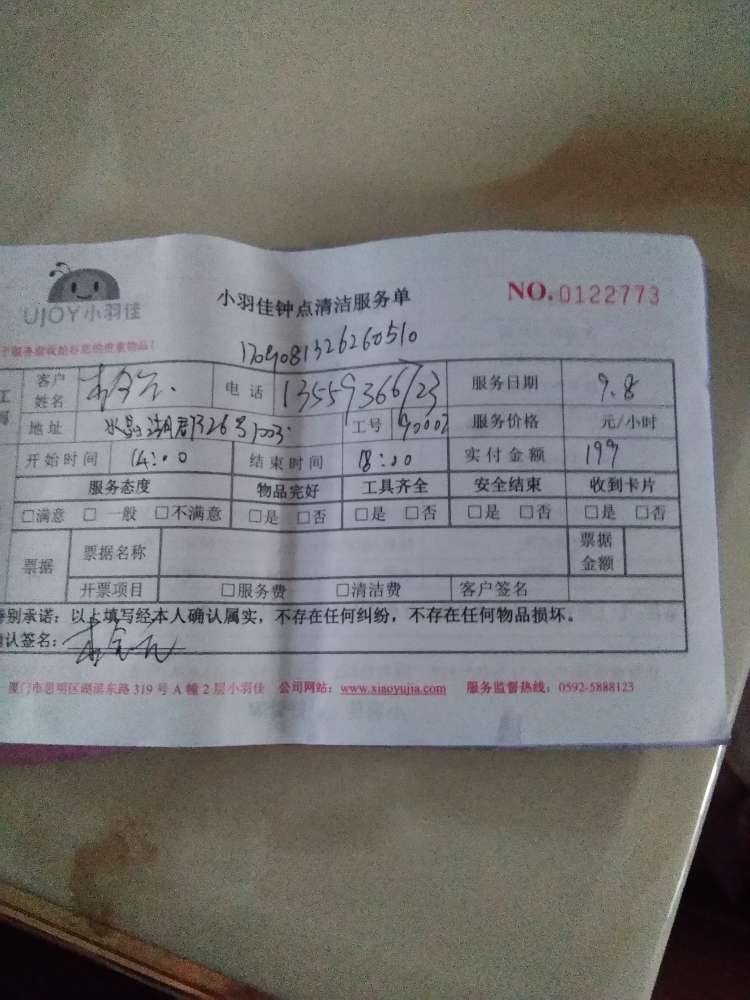 UJOY小羽佳
小羽佳钟点清洁服务单
NO.0122773
1709081326260510
客户姓名 电话 13559366723 服务日期 9.8
地址 326号1003 工号 90002 服务价格 元/小时
开始时间 14:00 结束时间 18:00 实付金额 199
服务态度 物品完好 工具齐全 安全结束 收到卡片
□满意 □一般 □不满意 □是 □否 □是 □否 □是 □否 □是 □否
票据 票据名称 票据金额
开票项目 □服务费 □清洁费 客户签名
别承诺：以上填写经本人确认属实，不存在任何纠纷，不存在任何物品损坏。
认签名：
厦门市思明区湖滨东路 319 号 A 幢 2 层小羽佳 公司网站：www.xiaoyujia.com 服务监督热线：0592-5888123